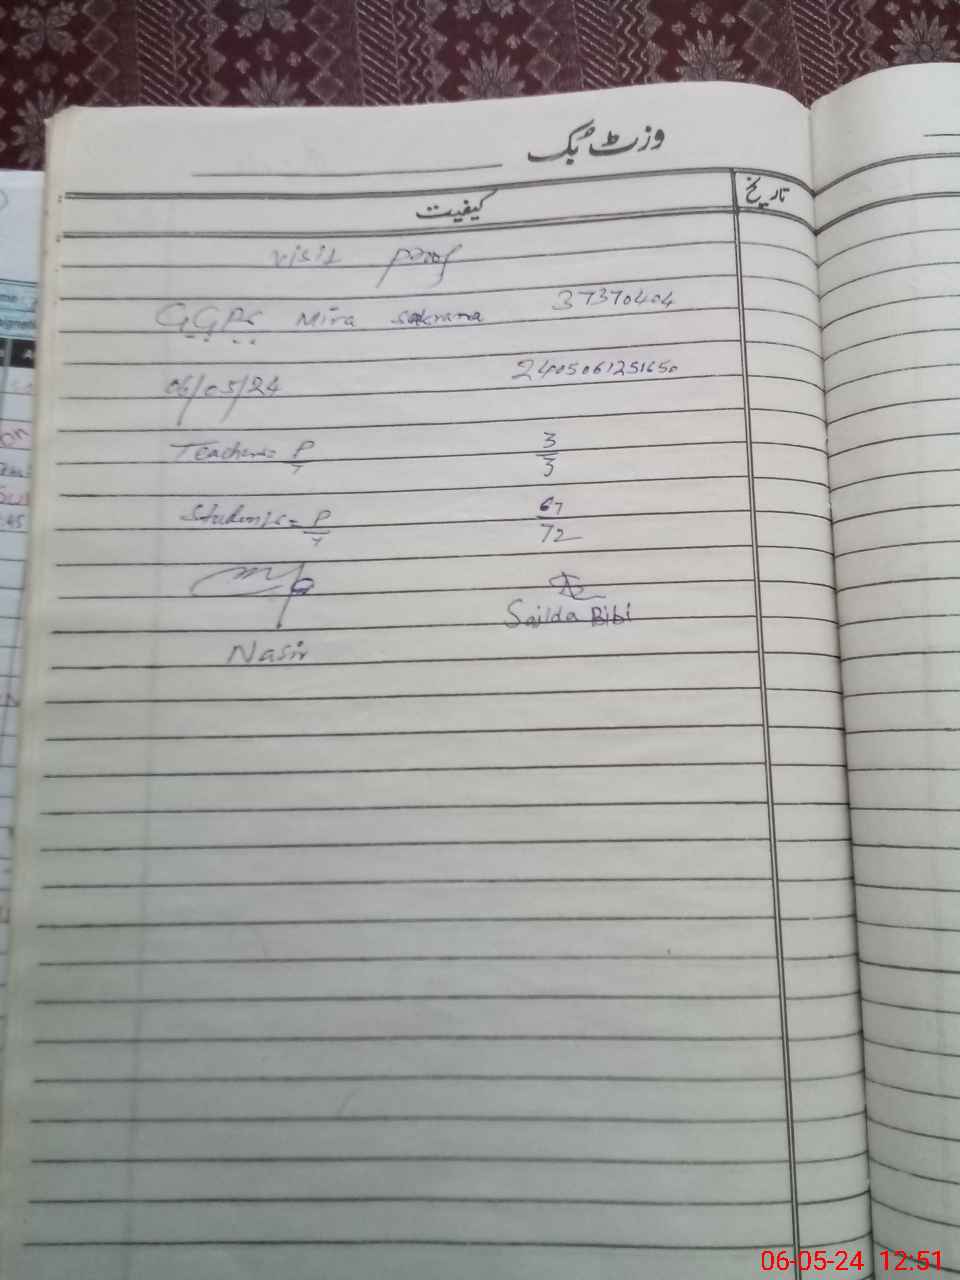 وزٹ بک
کیفیت تاریخ
visit proof
GGPS Mira Sakrana 37370404
06/05/24 2405061251650
Teachers= P/T 3/3
Students= P/T 67/72
Sailda Bibi
Nasir
06-05-24 12:51